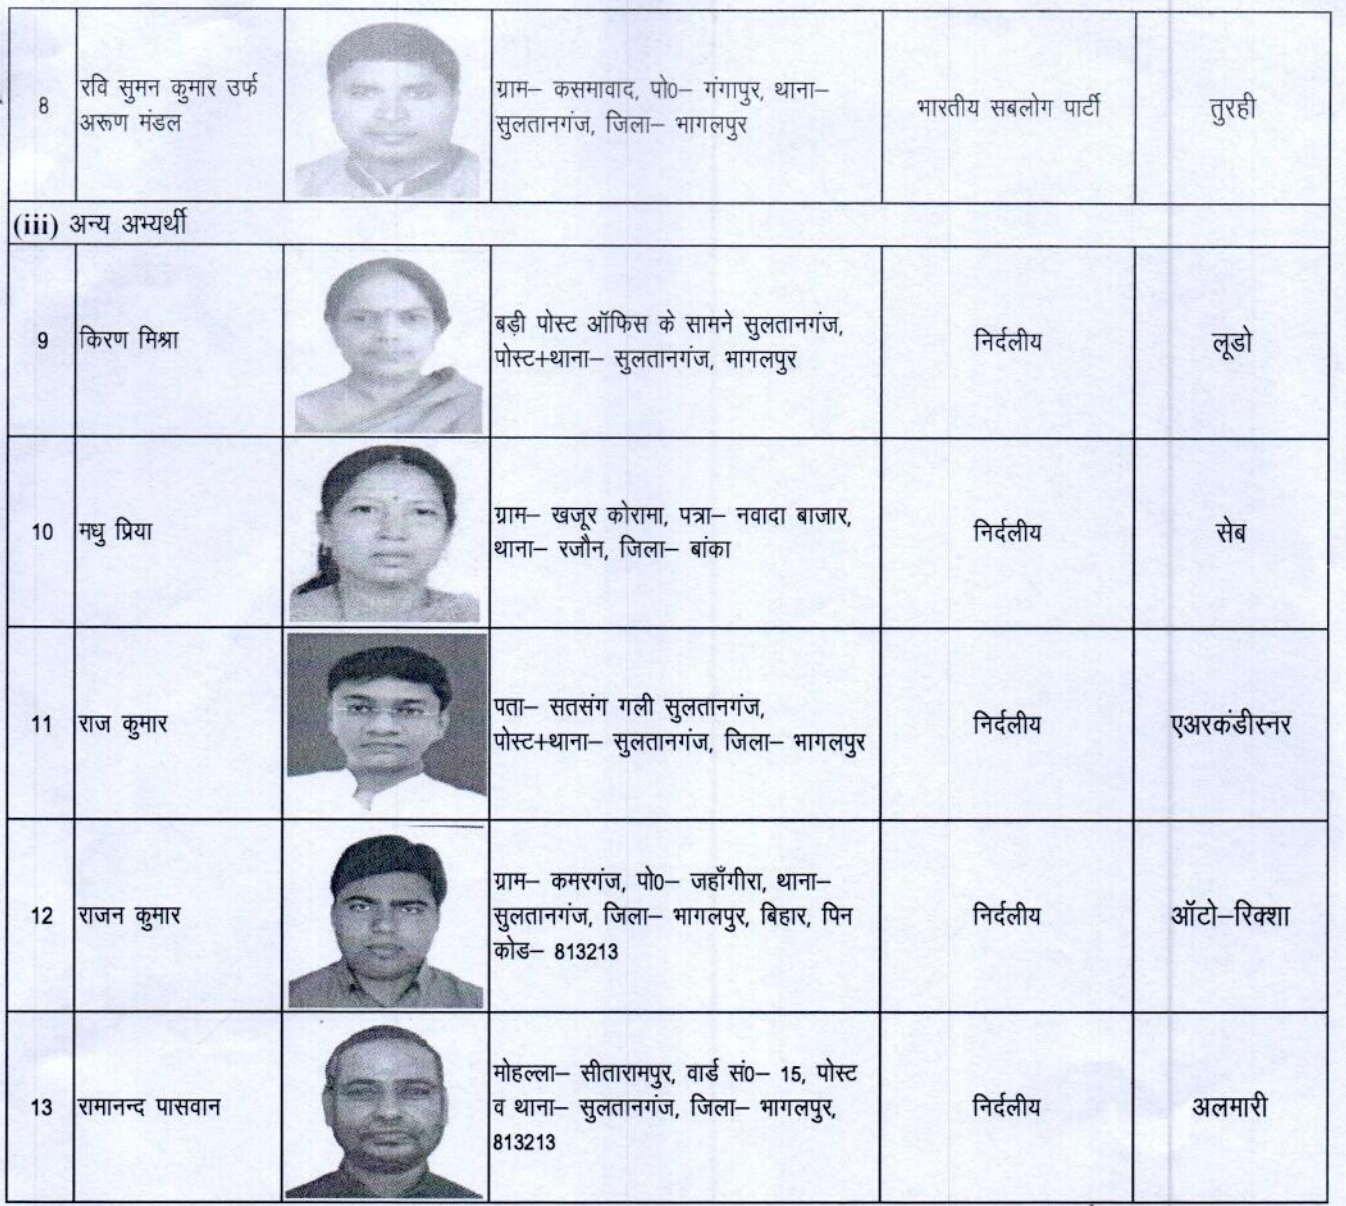 8
रवि सुमन कुमार उर्फ
अरूण मंडल
ग्राम– कसमावाद, पो0– गंगापुर, थाना–
सुलतानगंज, जिला– भागलपुर
भारतीय सबलोग पार्टी
तुरही
(iii) अन्य अभ्यर्थी
9
किरण मिश्रा
बड़ी पोस्ट ऑफिस के सामने सुलतानगंज,
पोस्ट+थाना– सुलतानगंज, भागलपुर
निर्दलीय
लूडो
10
मधु प्रिया
ग्राम– खजूर कोरामा, पत्रा– नवादा बाजार,
थाना– रजौन, जिला– बांका
निर्दलीय
सेब
11
राज कुमार
पता– सतसंग गली सुलतानगंज,
पोस्ट+थाना– सुलतानगंज, जिला– भागलपुर
निर्दलीय
एअरकंडीस्नर
12
राजन कुमार
ग्राम– कमरगंज, पो0– जहाँगीरा, थाना–
सुलतानगंज, जिला– भागलपुर, बिहार, पिन
कोड– 813213
निर्दलीय
ऑटो–रिक्शा
13
रामानन्द पासवान
मोहल्ला– सीतारामपुर, वार्ड सं0– 15, पोस्ट
व थाना– सुलतानगंज, जिला– भागलपुर,
813213
निर्दलीय
अलमारी